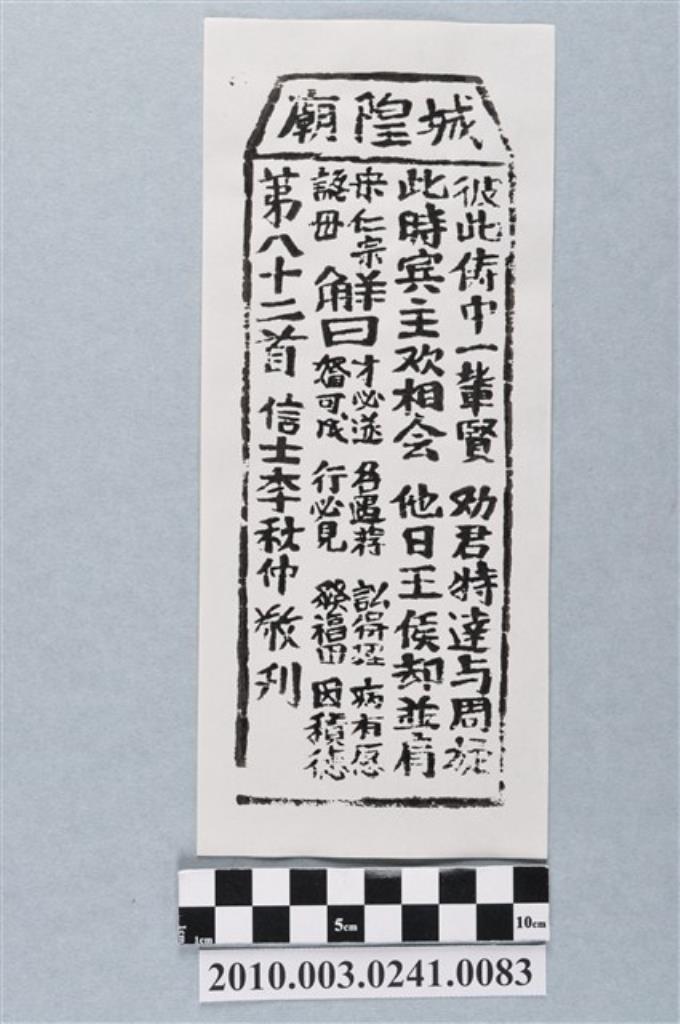 城隍廟
彼此儔中一輩賢 劝君特達与周旋
此時宾主欢相会 他日王侯却並肩
宋仁宗認母
解曰
才必遂 名遇薦 訟得理 病有愿
婚可成 行必見 發福田 因積德
第八十二首 信士李秋仲敬刋
5cm
10cm
1cm
2010.003.0241.0083